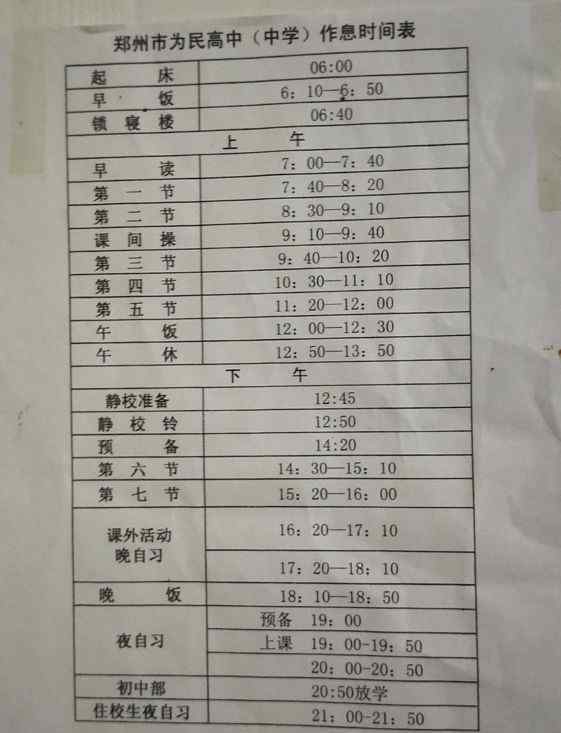 郑州市为民高中（中学）作息时间表
起 床 06:00
早 饭 6：10—6：50
锁 寝 楼 06:40
上 午
早 读 7：00—7：40
第 一 节 7：40—8：20
第 二 节 8：30—9：10
课 间 操 9：10—9：40
第 三 节 9：40—10：20
第 四 节 10：30—11：10
第 五 节 11：20—12：00
午 饭 12：00—12：30
午 休 12：50—13：50
下 午
静校准备 12:45
静 校 铃 12:50
预 备 14:20
第 六 节 14：30—15：10
第 七 节 15：20—16：00
课外活动 16：20—17：10
晚自习 17：20—18：10
晚 饭 18：10—18：50
夜自习 预备 19：00
上课 19：00-19：50
20：00-20：50
初中部 20:50放学
住校生夜自习 21：00-21：50